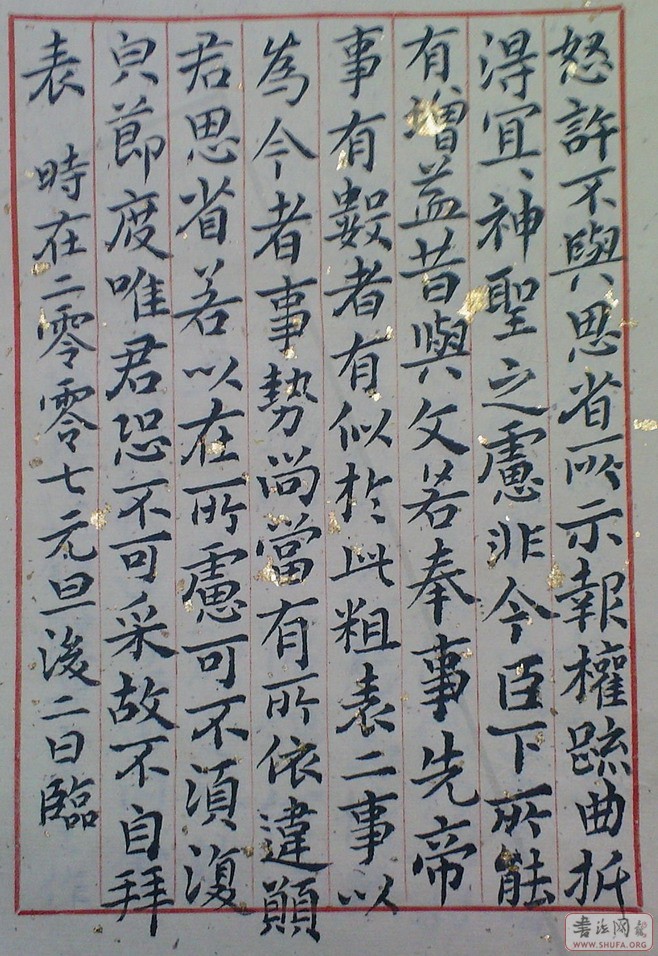 怒許不與思省所示報權疏曲折
得宜、神聖之慮非今臣下所能
有增益昔與文若奉事先帝
事有數者有似於此粗表二事以
為今者事勢尚當有所依違願
君思省若以在所慮可不須復
皃節度唯君恐不可采故不自拜
表 時在二零零七元旦後二日臨
書法网
WWW.SHUFA.ORG